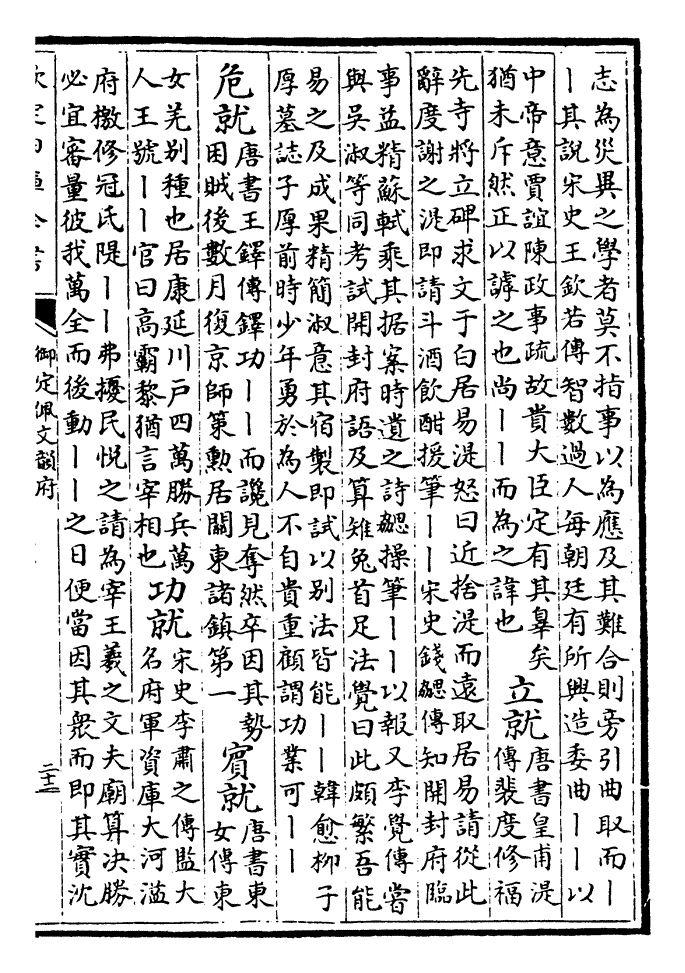 志為災異之學者莫不指事以為應及其難合則旁引曲取而丨
丨其說宋史王欽若傳智數過人每朝廷有所興造委曲丨丨以
中帝意賈誼陳政事疏故貴大臣定有其辠矣
猶未斥然正以謼之也尚丨丨而為之諱也
立就
唐書皇甫湜
傳裴度修福
先寺將立碑求文于白居易湜怒曰近捨湜而遠取居易請從此
辭度謝之湜即請斗酒飲酣援筆丨丨宋史錢勰傳知開封府臨
事益精蘇軾乘其据案時遺之詩勰操筆丨丨以報又李覺傳嘗
與吳淑等同考試開封府語及算雉兔首足法覺曰此頗繁吾能
易之及成果精簡淑意其宿製即試以别法皆能丨丨韓愈柳子
厚墓誌子厚前時少年勇於為人不自貴重顧謂功業可丨丨
危就
唐書王鐸傳鐸功丨丨而讒見奪然卒因其勢
困賊後數月復京師策勲居關東諸鎮第一
賓就
唐書東
女傳東
女羌别種也居康延川户四萬勝兵萬
人王號丨丨官曰高霸黎猶言宰相也
功就
宋史李肅之傳監大
名府軍資庫大河溢
府檄修冠氏隄丨丨弗擾民悦之請為宰王羲之文夫廟算决勝
必宜審量彼我萬全而後動丨丨之日便當因其衆而即其實沈
欽定四庫全書
御定佩文韻府
二十二